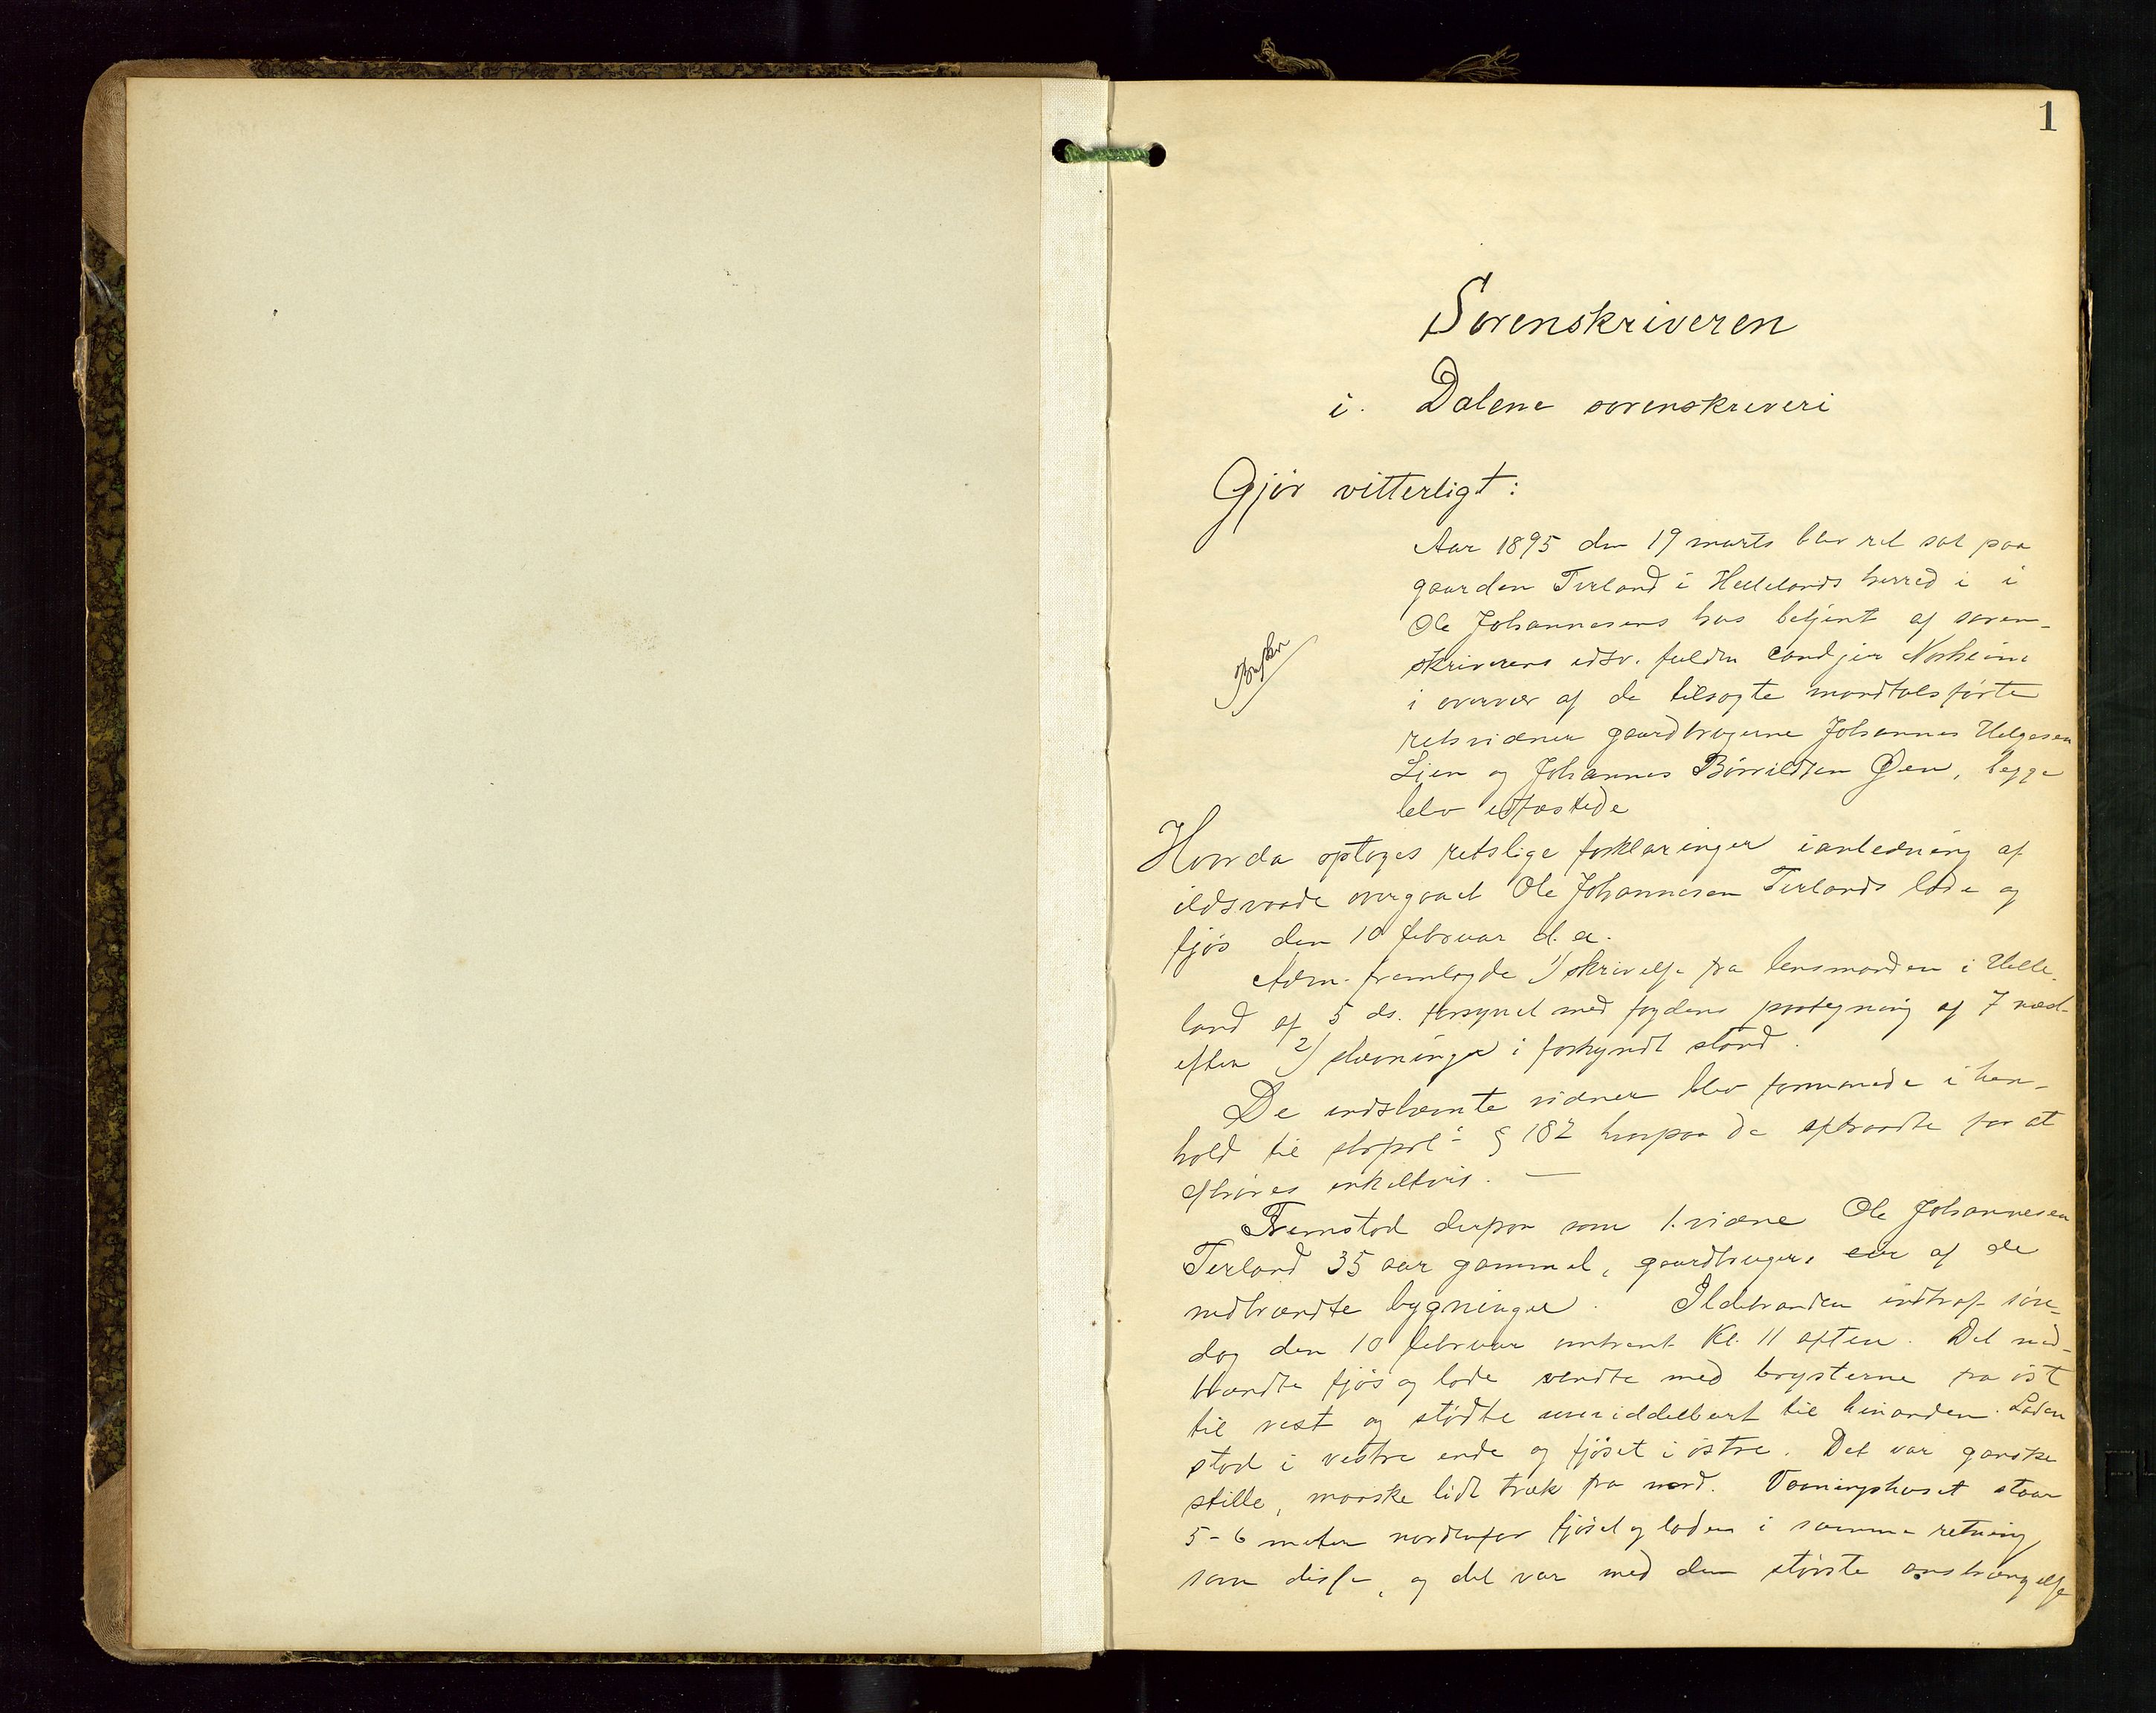 1
Sorenskriveren
i. Dalene sorenskriveri
Gjör vitterligt:
Aar 1895 den 19 marts blev ret sat paa
gaarden Terland i Hellelands herred i i
Ole Johannesens hus betjent af soren-
skriverens edsv. fuldm cand jur Norheim
i overvær af de tilsagte mandtalsförte
retsvidner gaardbrugerne Johannes Helgesen
Lien og Johannes Börrildsen Öen, begge
blev edfæstede
Hvorda optoges retslige forklaringer ianledning af
ildsvaade overgaaet Ole Johannesen Terlands lade og
fjös den 10 februar d. a.
Adm. fremlagde 1) skrivelse fra lensmanden i Helle-
land af 5 ds. forsynet med fogdens paategning af 7 næst-
efter 2) stevninger i forkyndt stand.
De indstevnte vidner blev formanede i hen-
hold til § 182 hvorpaa de aftraadte for at
afhöres enkeltvis. —
Fremstod derpaa som 1. vidne Ole Johannesen
Terland 35 aar gammel, gaardbruger, eier af de
nedbrændte bygninger. Ildebranden indtraf sön-
dag den 10 februar omtrent Kl. 11 aften. Det ned-
brændte fjös og lade vendte med brysterne fra öst
til vest og stödte umiddelbart til hinanden. Laden
stod i vestre ende og fjöset i östre. Det var ganske
stille, maaske lidt træk fra nord. Vaaningshuset staar
5-6 meter nordenfor fjöset og laden i samme retning
som disse, og det var med den störste anstrængelse